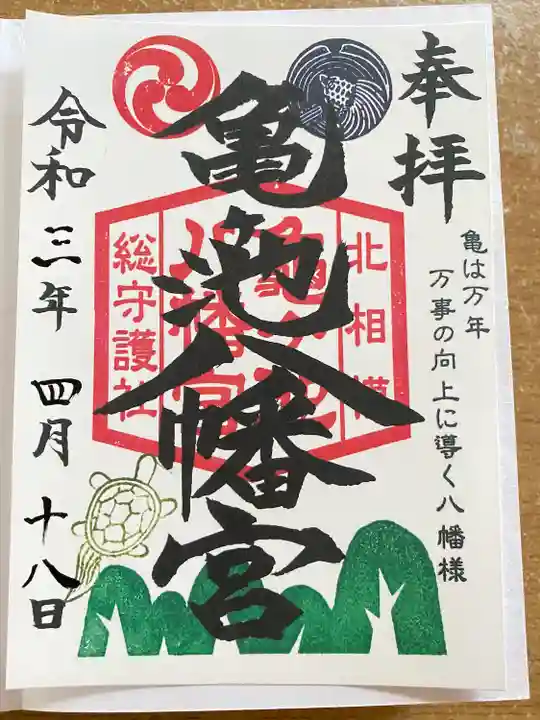 奉拝
亀は万年
万事の向上に導く八幡様
亀池八幡宮
北相模
総守護社
令和三年四月十八日